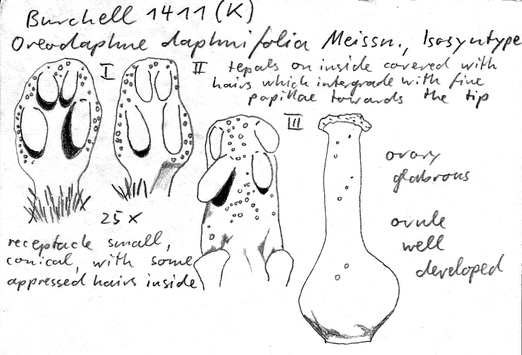 Burchell 1411 (K)
Oreodaphne daphnifolia Meissn., Isosyntype
I
II
tepals on inside covered with
hairs which intergrade with fine
papillae towards the tip
III
ovary
glabrous
25x
ovule
well
developed
receptacle small,
conical, with some
appressed hairs inside